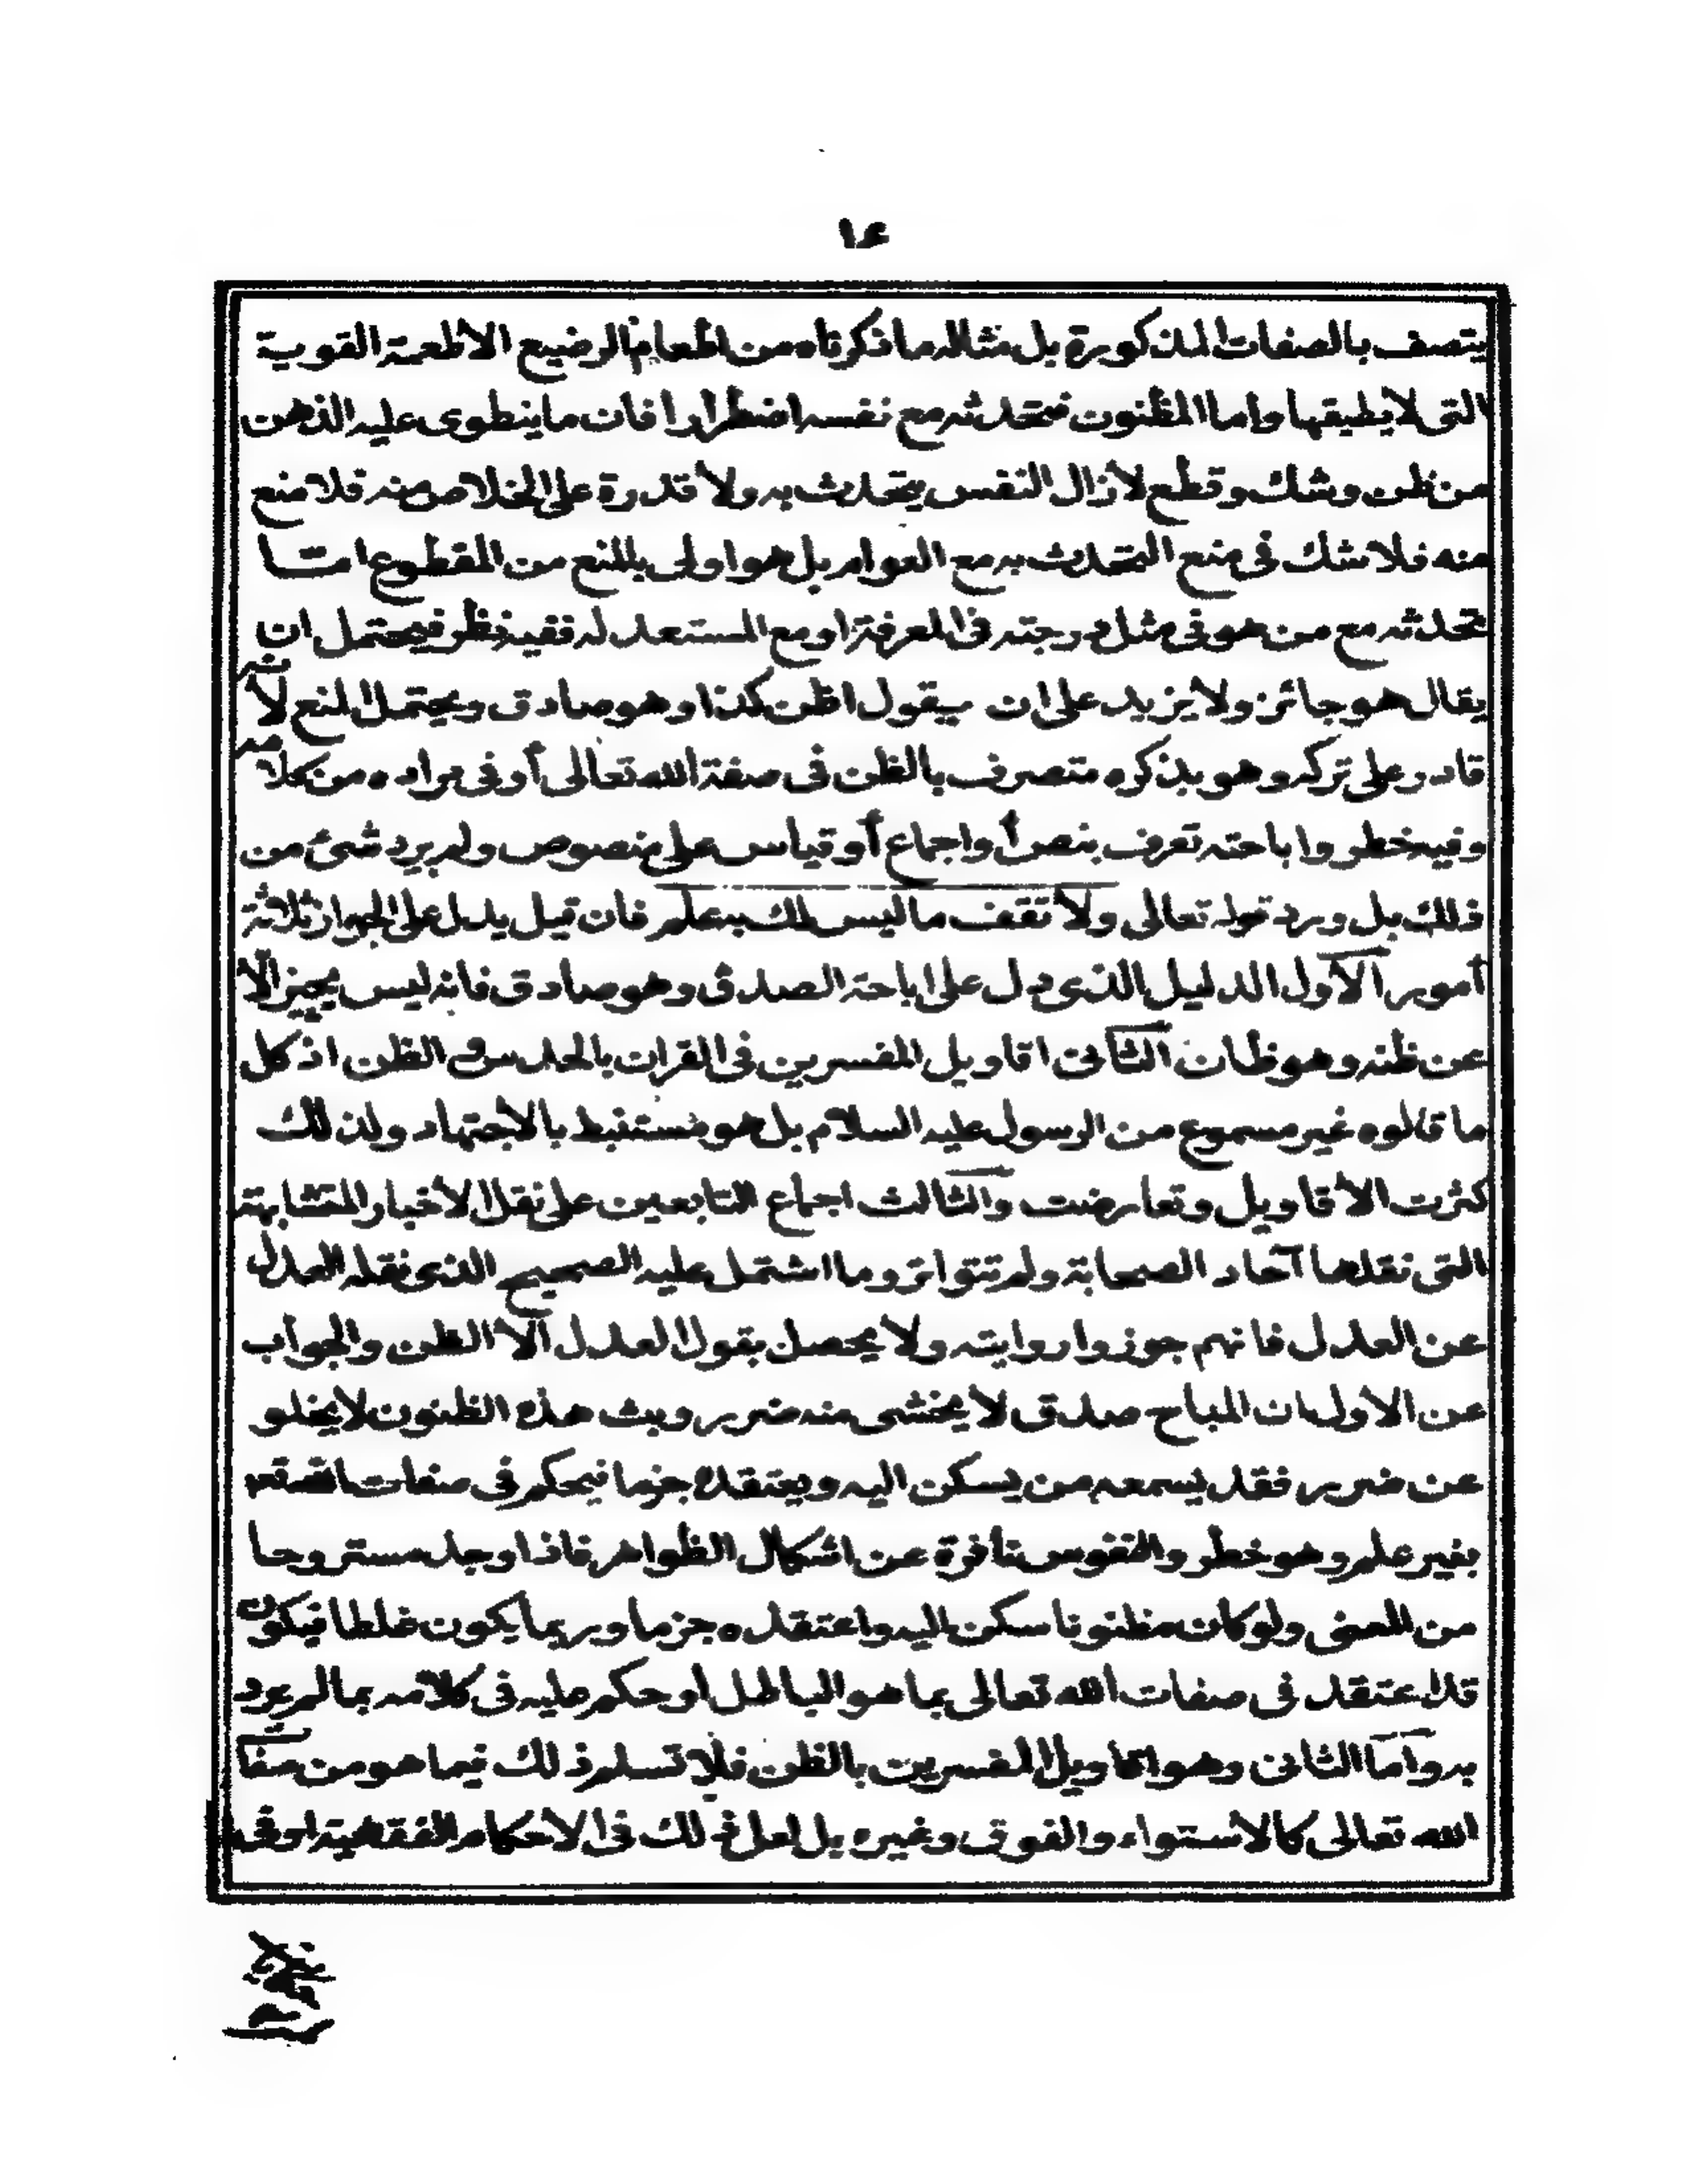 ١٤
يتصف بالصفات المذكورة بل مثاله ما ذكرناه من اطعام الرضيع الاطعمة القوية
التى لا يطيقها واما المظنون فتحدثه مع نفسه اضطرارا فان ما ينطوى عليه الذهن
من ظن وشك وقطع لا زال النفس يتحدث به ولا قدرة على الخلاص منه فلا منع
منه فلا شك فى منع التحدث به مع العوام بل هو اولى بالمنع من المقطوع اما
تحدثه مع من هو فى مثل درجته فى المعرفة او مع المستعد له ففيه نظر فيحتمل ان
يقال هو جائز ولا يزيد على ان يقول اظن كذا وهو صادق ويحتمل المنع لأنه
قادر على تركه وهو بذكره متصرف بالظن فى صفة الله تعالى أو فى مراده من كلامه
وفيه خطر وا باحته تعرف بنص أو اجماع أو قياس على منصوص ولم يرد شئ من
ذلك بل ورد قوله تعالى ولا تقف ما ليس لك به علم فان قيل يدل على الجواز ثلاثة
أمور الأول الدليل الذى دل على اباحة الصدق وهو صادق فانه ليس يخبر الا
عن ظنه وهو ظان الثانى اقاويل المفسرين فى القران بالحدس والظن اذ كل
ما قالوه غير مسموع من الرسول عليه السلام بل هو مستنبط بالاجتهاد ولذلك
كثرت الأقاويل وتعارضت والثالث اجماع التابعين على نقل الاخبار المتشابهة
التى نقلها آحاد الصحابة ولم تتواتر وما اشتمل عليه الصحيح الذى نقله العدل
عن العدل فانهم جوزوا روايته ولا يحصل بقول العدل الا الظن والجواب
عن الاول ان المباح صدق لا يخشى منه ضرر وبث هذه الظنون لا يخلو
عن ضرر فقد يسمعه من يسكن اليه ويعتقده جزما فيحكم فى صفات الله تعه
بغير علم وهو خطر والنفوس نافرة عن اشكال الظواهر فاذا وجد مستروحا
من المعنى ولو كان مظنونا سكن اليه واعتقده جزما وربما يكون غلطا فيكون
قد اعتقد فى صفات الله تعالى بما هو الباطل أو حكم عليه فى كلامه بما لم يرد
به واما الثانى وهو اقاويل المفسرين بالظن فلا تسلم ذلك فيما هو من صفا
الله تعالى كالاستواء والفوق وغيره بل لعل ذلك فى الاحكام الفقهية او فى